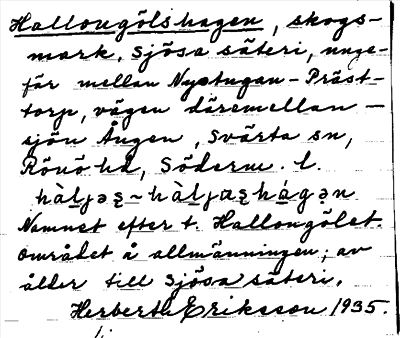 Hallongölshagen, skogs-
mark, Sjösa säteri, unge-
fär mellan Nystugan - Präst-
torp, vägen däremellan -
sjön Ången, Svärta sn,
Rönö hd, Söderm. l.
Namnet efter t. Hallongölet.
Området å allmänningen; av
ålder till Sjösa säteri.
Herberth Eriksson 1935.